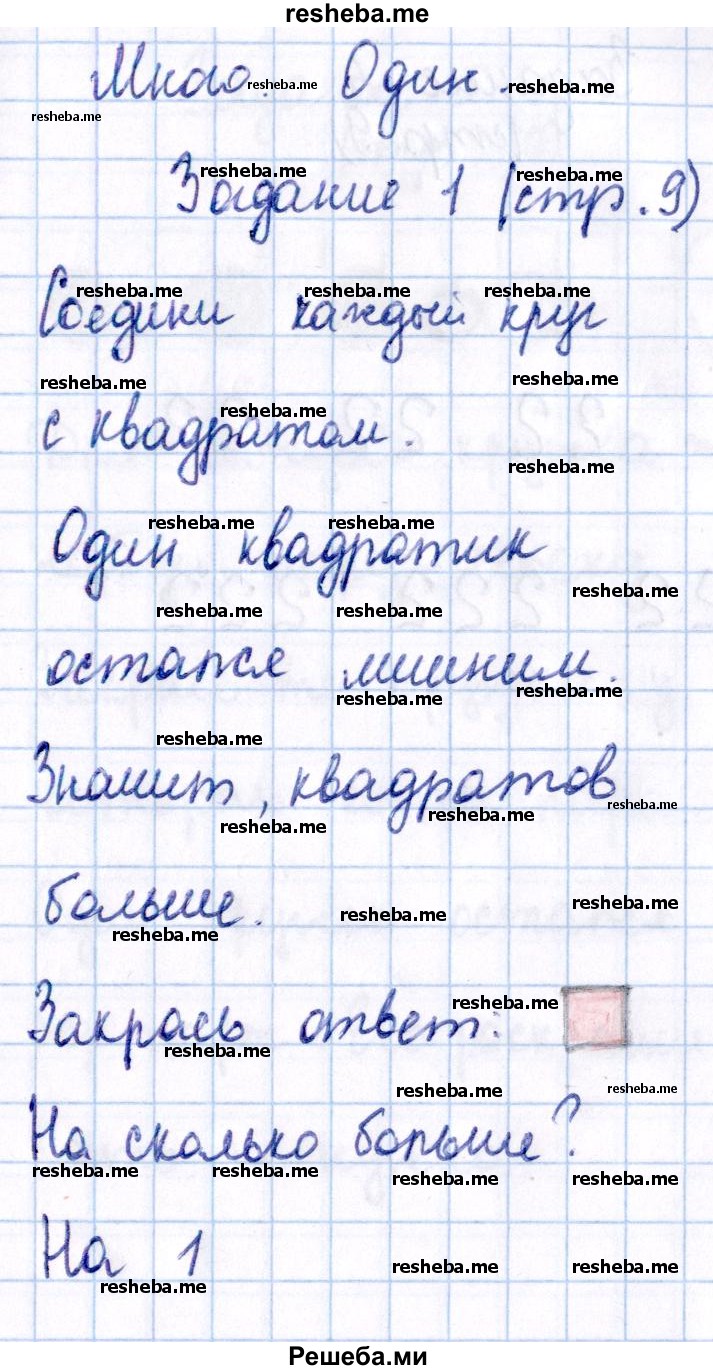 resheba.me
Много. Один.
resheba.me resheba.me
resheba.me
resheba.me resheba.me
Задание 1 (стр. 9)
resheba.me resheba.me resheba.me
Соедини каждый круг
resheba.me resheba.me
resheba.me
с квадратом.
resheba.me
resheba.me resheba.me
Один квадратик
resheba.me
resheba.me resheba.me
остался лишним.
resheba.me resheba.me
resheba.me
Значит, квадратов
resheba.me
resheba.me resheba.me
больше.
resheba.me resheba.me
resheba.me
resheba.me
Закрась ответ:
resheba.me
resheba.me resheba.me
На сколько больше?
resheba.me resheba.me resheba.me resheba.me
На 1
resheba.me resheba.me
resheba.me
Решеба.ми